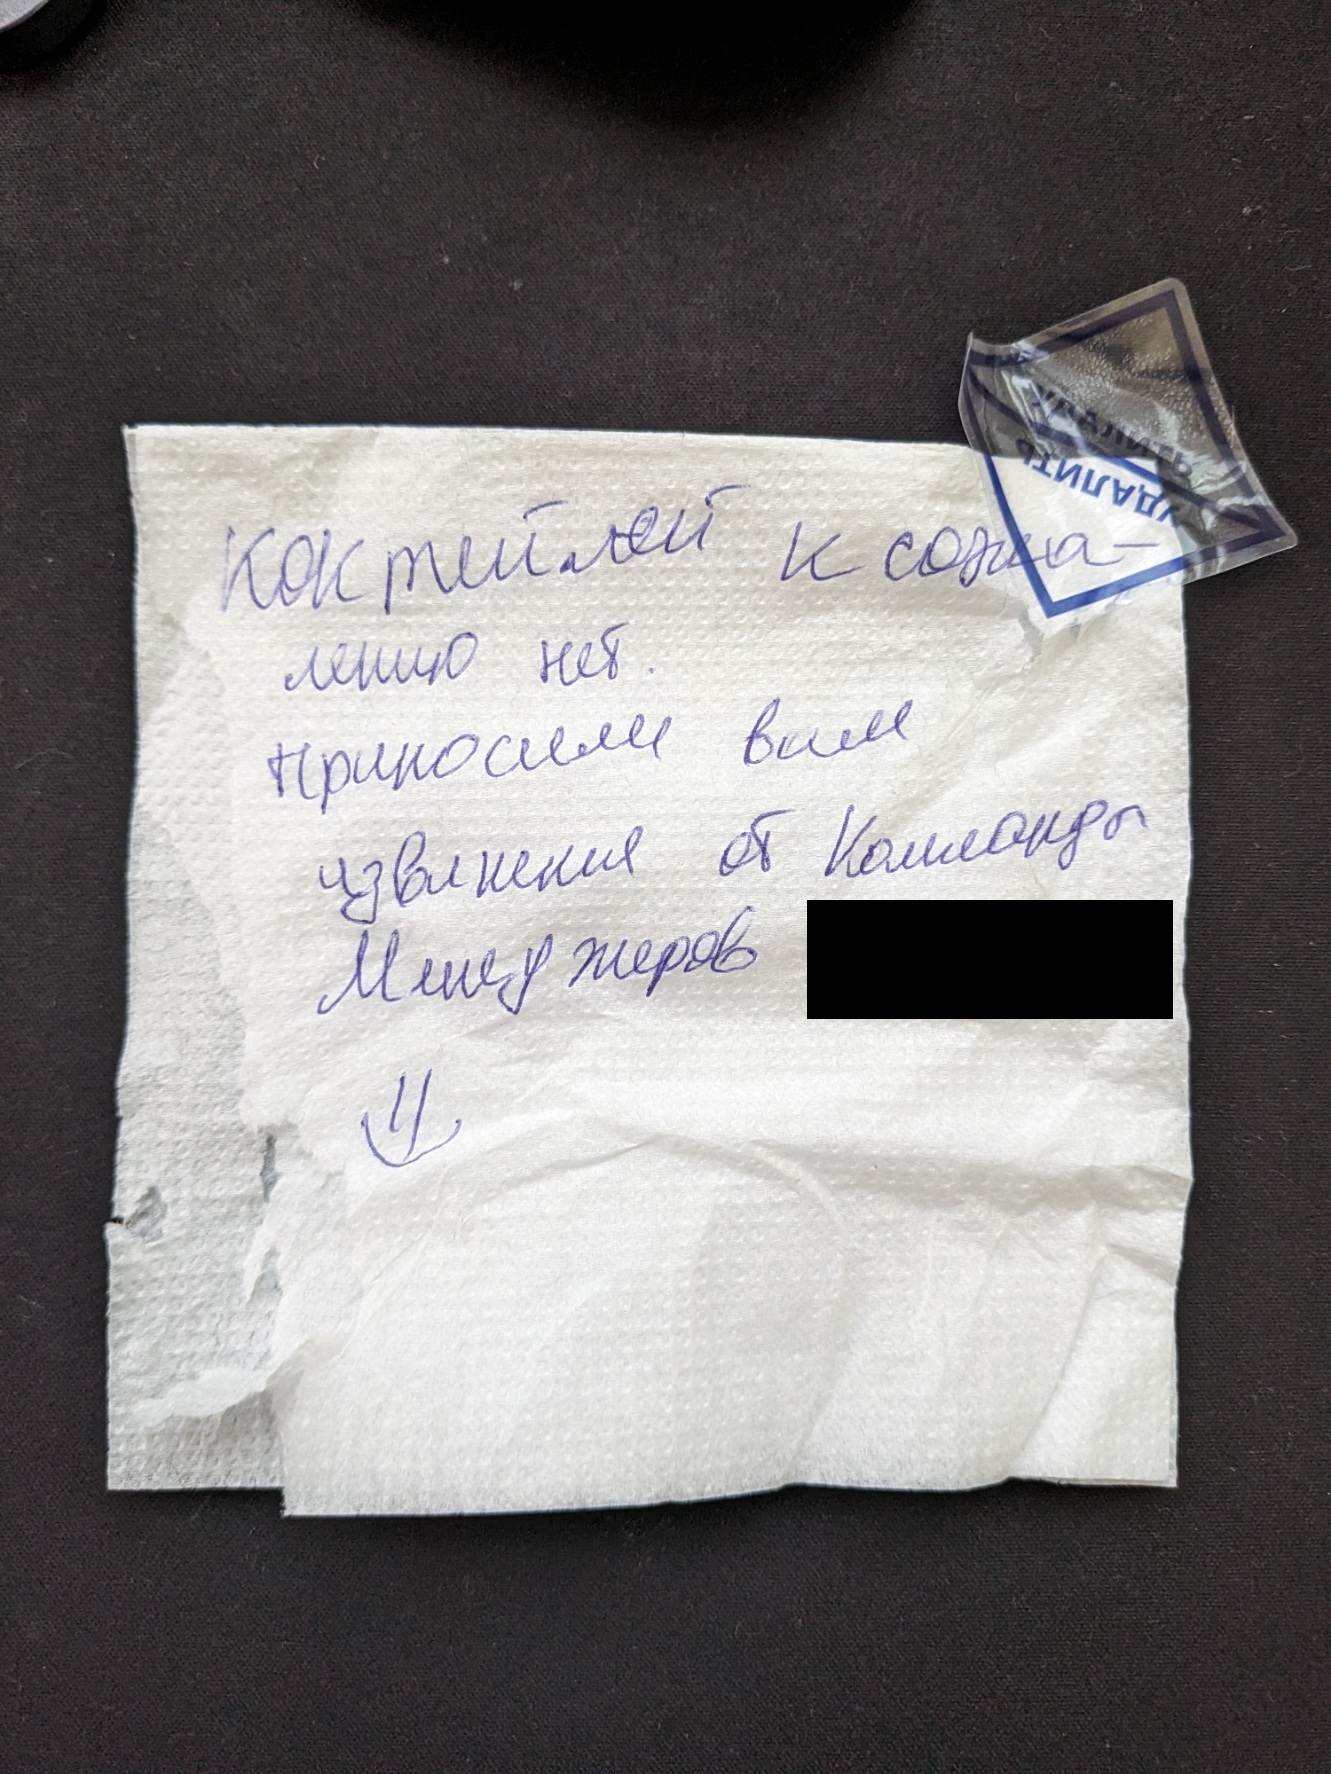 Коктейлей к сожа-
лению нет.
Приносим вам
извенения от Комманды
Менеджеров
УДАЛИТЬ
УДАЛИТЬ